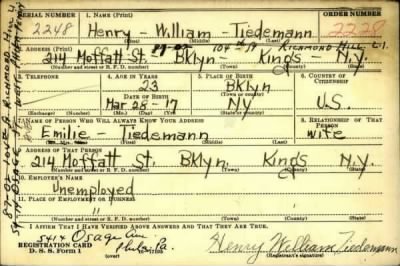 SERIAL NUMBER 1. NAME (Print) ORDER NUMBER
2248 Henry - William - Tiedemann 2228
87-02 104th St Richmond Hill L.I.
2. ADDRESS (Print)
214 Moffatt St. Bklyn - Kings - N.Y.
(Number and street or R. F. D. number) (Town) (County) (State)
3. TELEPHONE 4. AGE IN YEARS 5. PLACE OF BIRTH 6. COUNTRY OF CITIZENSHIP
23 Bklyn
DATE OF BIRTH
Mar 28-17 NY U.S.
(Exchange) (Number) (Mo.) (Day) (Yr.) (Town or county) (State or country)
7. NAME OF PERSON WHO WILL ALWAYS KNOW YOUR ADDRESS 8. RELATIONSHIP OF THAT PERSON
Emilie - Tiedemann Wife
9. ADDRESS OF THAT PERSON
214 Moffatt St. Bklyn. Kings N.Y.
(Number and street or R. F. D. number) (Town) (County) (State)
10. EMPLOYER'S NAME
Unemployed
11. PLACE OF EMPLOYMENT OR BUSINESS
" "
(Number and street or R. F. D. number) (Town) (County) (State)
I AFFIRM THAT I HAVE VERIFIED ABOVE ANSWERS AND THAT THEY ARE TRUE.
5414 Osage Ave
Phila. Pa.
REGISTRATION CARD
D. S. S. Form 1 (over) Henry William Tiedemann
(Registrant's signature)
87-02 104th St Richmond Hill L.I.